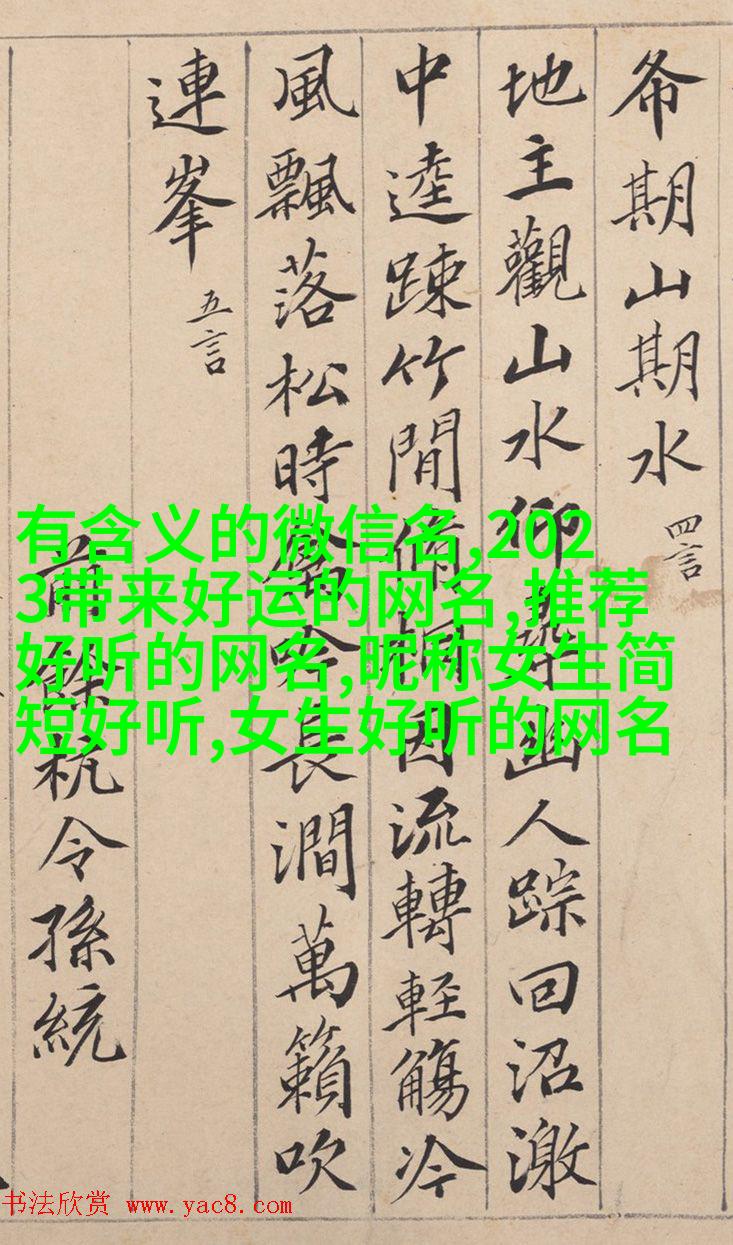 希期山期水 四言
地主觀山水仰尋幽人踪回沼激
中逵踈竹間脩桐因流轉輕觴冷
風飄落松時禽吟長澗萬籟吹
連峯 五言
前餘杭令孫統
有含义的微信名,202
3带来好运的网名,推荐
好听的网名,昵称女生简
短好听,女生好听的网名
书法欣赏 www.yac8.com